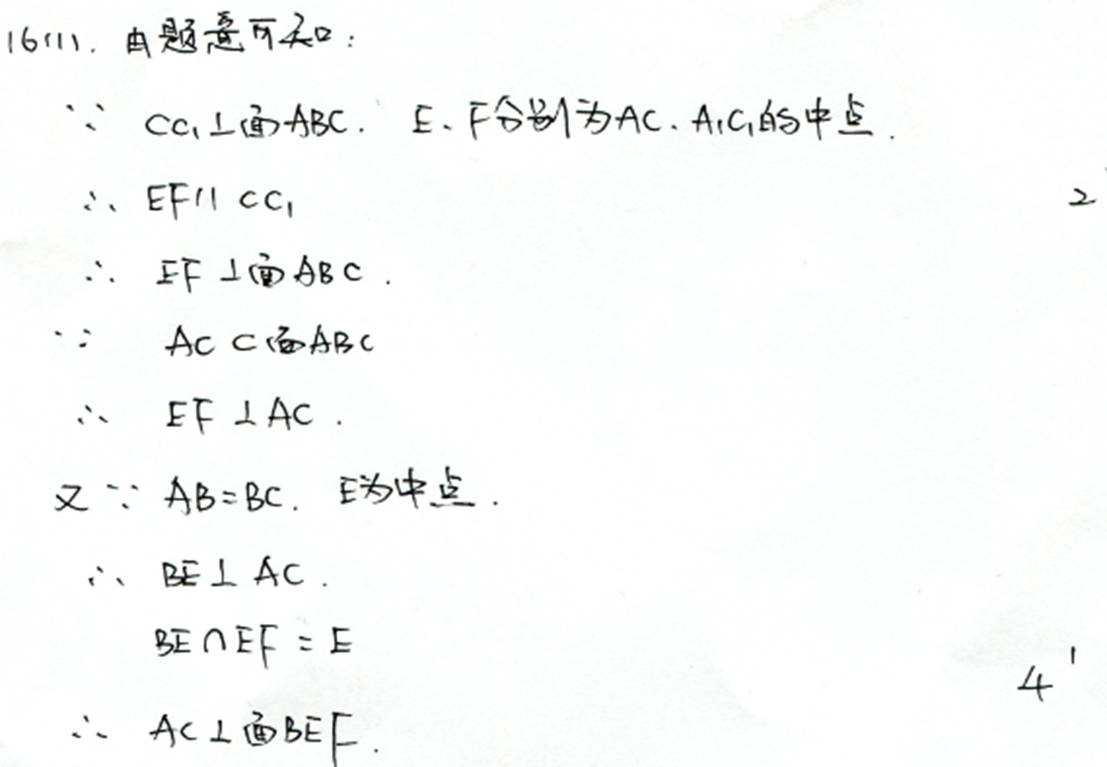 16(1). 由题意可知:
∵ CC₁⊥面ABC. E、F分别为AC、A₁C₁的中点.
∴ EF∥CC₁
2
∴ EF⊥面ABC.
∵ AC⊂面ABC
∴ EF⊥AC.
又∵ AB=BC. E为中点.
∴ BE⊥AC.
BE∩EF=E
4'
∴ AC⊥面BEF.